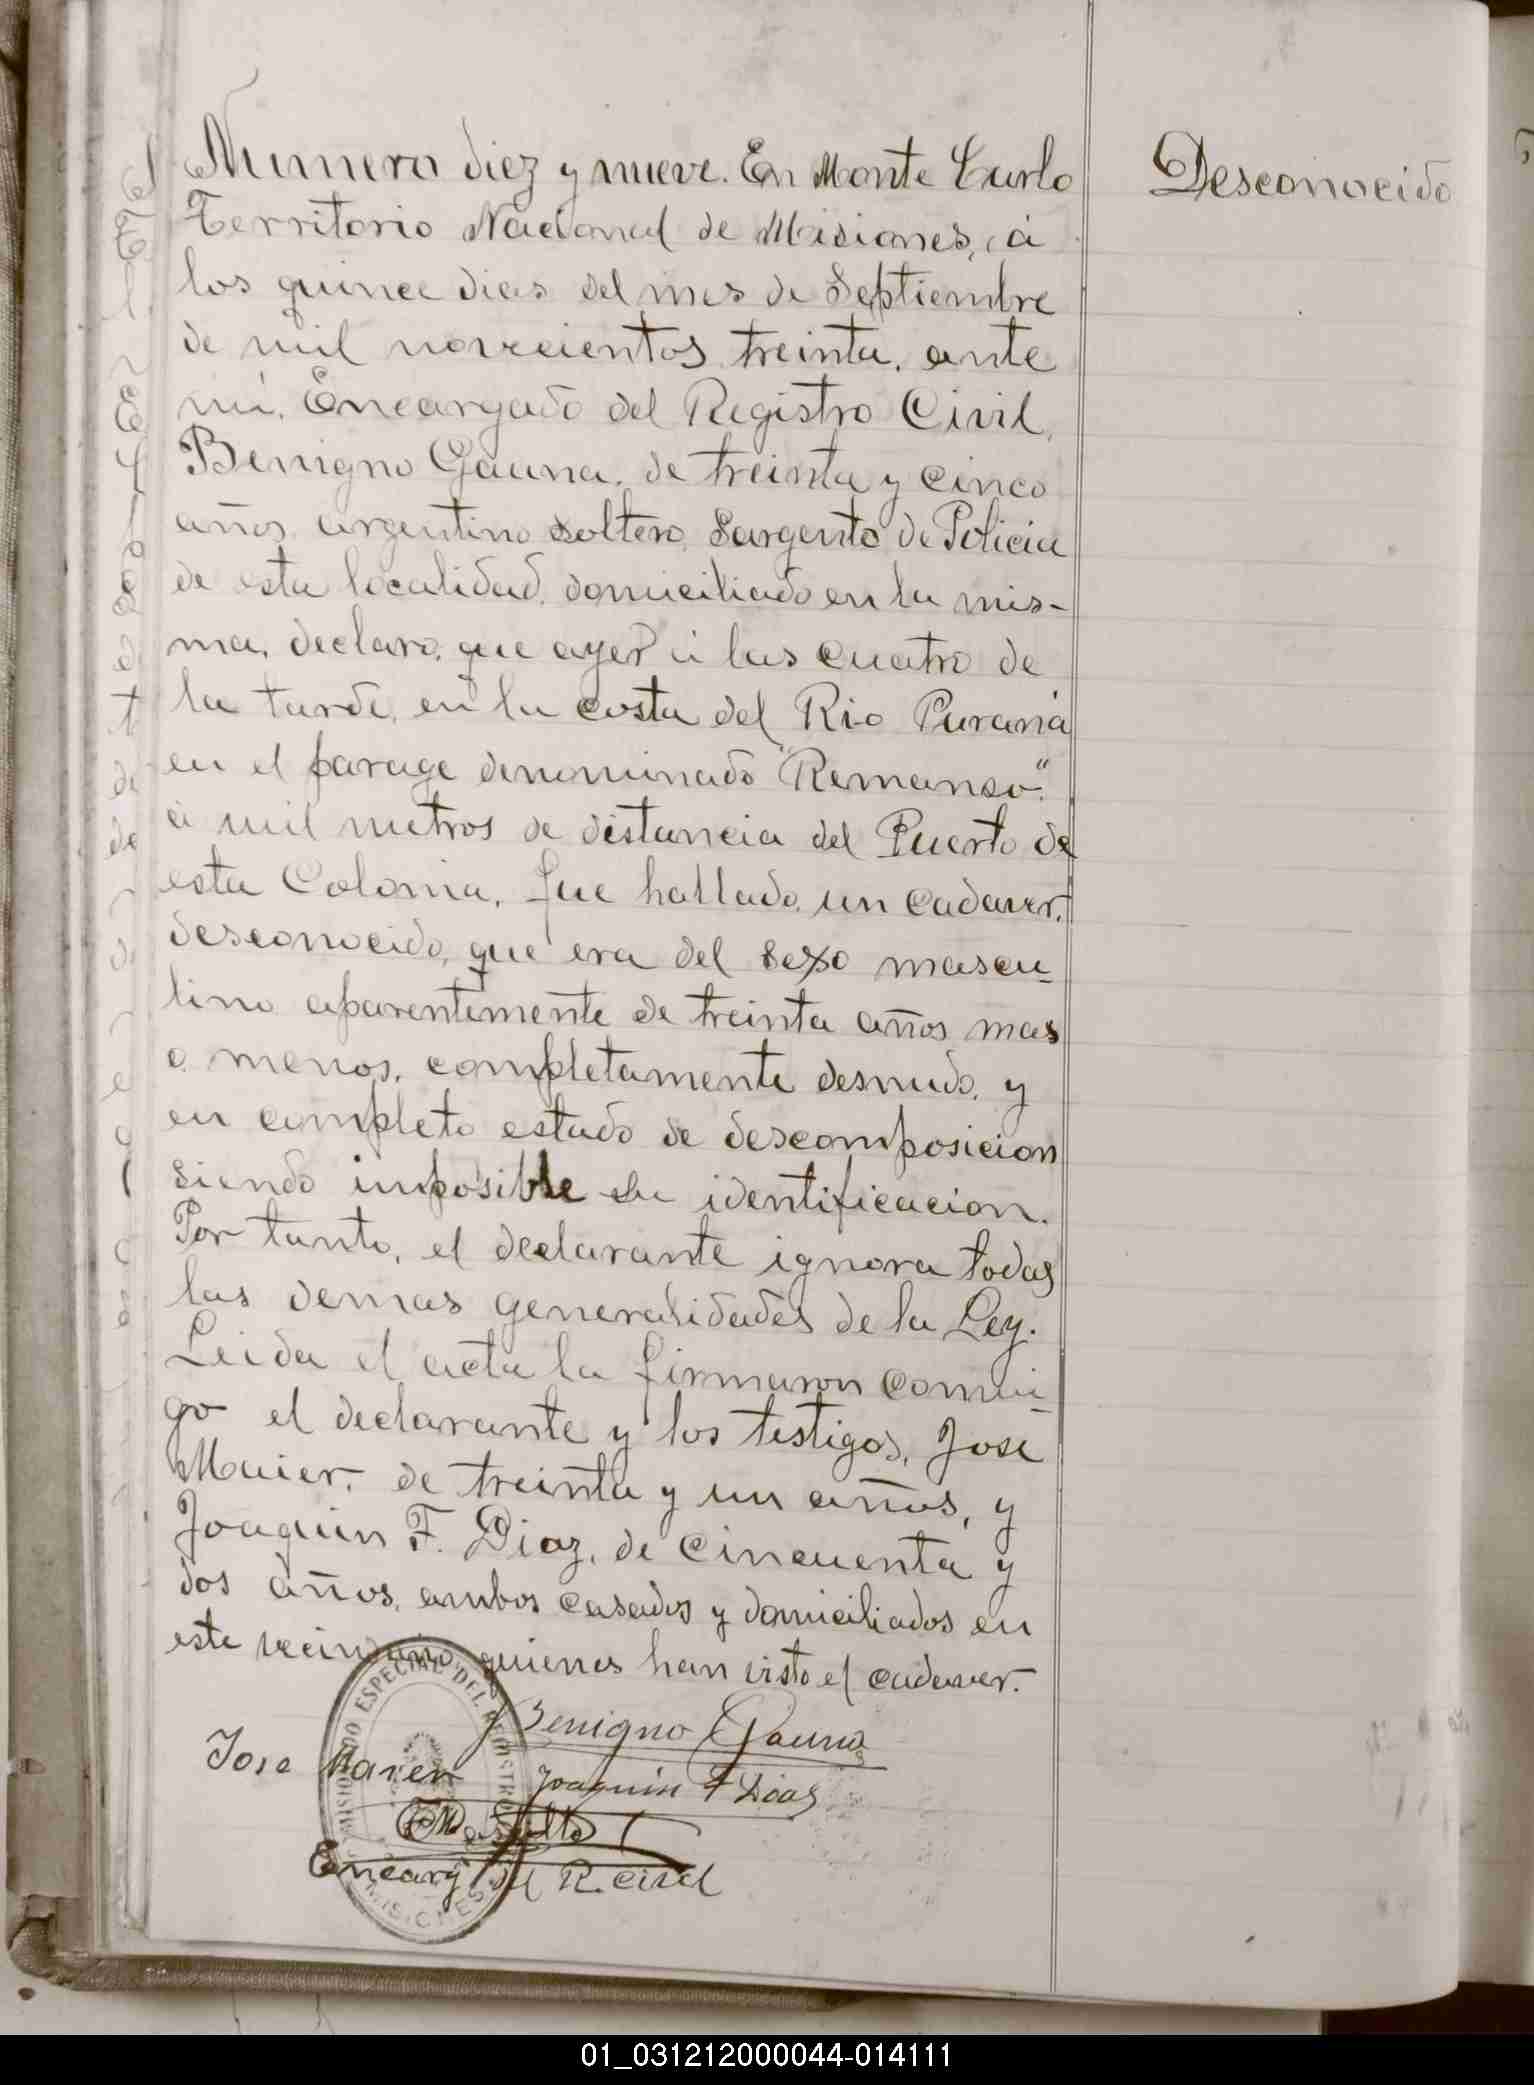 Numero diez y nueve. En Monte Carlo
Territorio Nacional de Misiones, á
los quince dias del mes de Septiembre
de mil novecientos treinta, ante
mi, Encargado del Registro Civil,
Benigno Gauna, de treinta y cinco
años, argentino soltero, Sargento de Policia
de esta localidad, domiciliado en la mis-
ma, declaro, que ayer á las cuatro de
la tarde, en la costa del Rio Paraná
en el parage denominado "Remanso"
á mil metros de distancia del Puerto de
esta Colonia, fue hallado un cadaver,
desconocido, que era del sexo mascu-
lino aparentemente de treinta años mas
o menos, completamente desnudo, y
en completo estado de descomposicion
siendo imposible su identificacion.
Por tanto, el declarante ignora todas
las demas generalidades de la Ley.
Leida el acta la firmaron conmi-
go el declarante y los testigos, José
Maier, de treinta y un años, y
Joaquin F. Diaz, de cincuenta y
dos años, ambos casados y domiciliados en
este vecindario, quienes han visto el cadaver.
Benigno Gauna
Jose Maier
Joaquin F Diaz
Encarg del R. Civil
ESPECIAL DEL REGISTRO
MISIONES
Desconocido
01_031212000044-014111